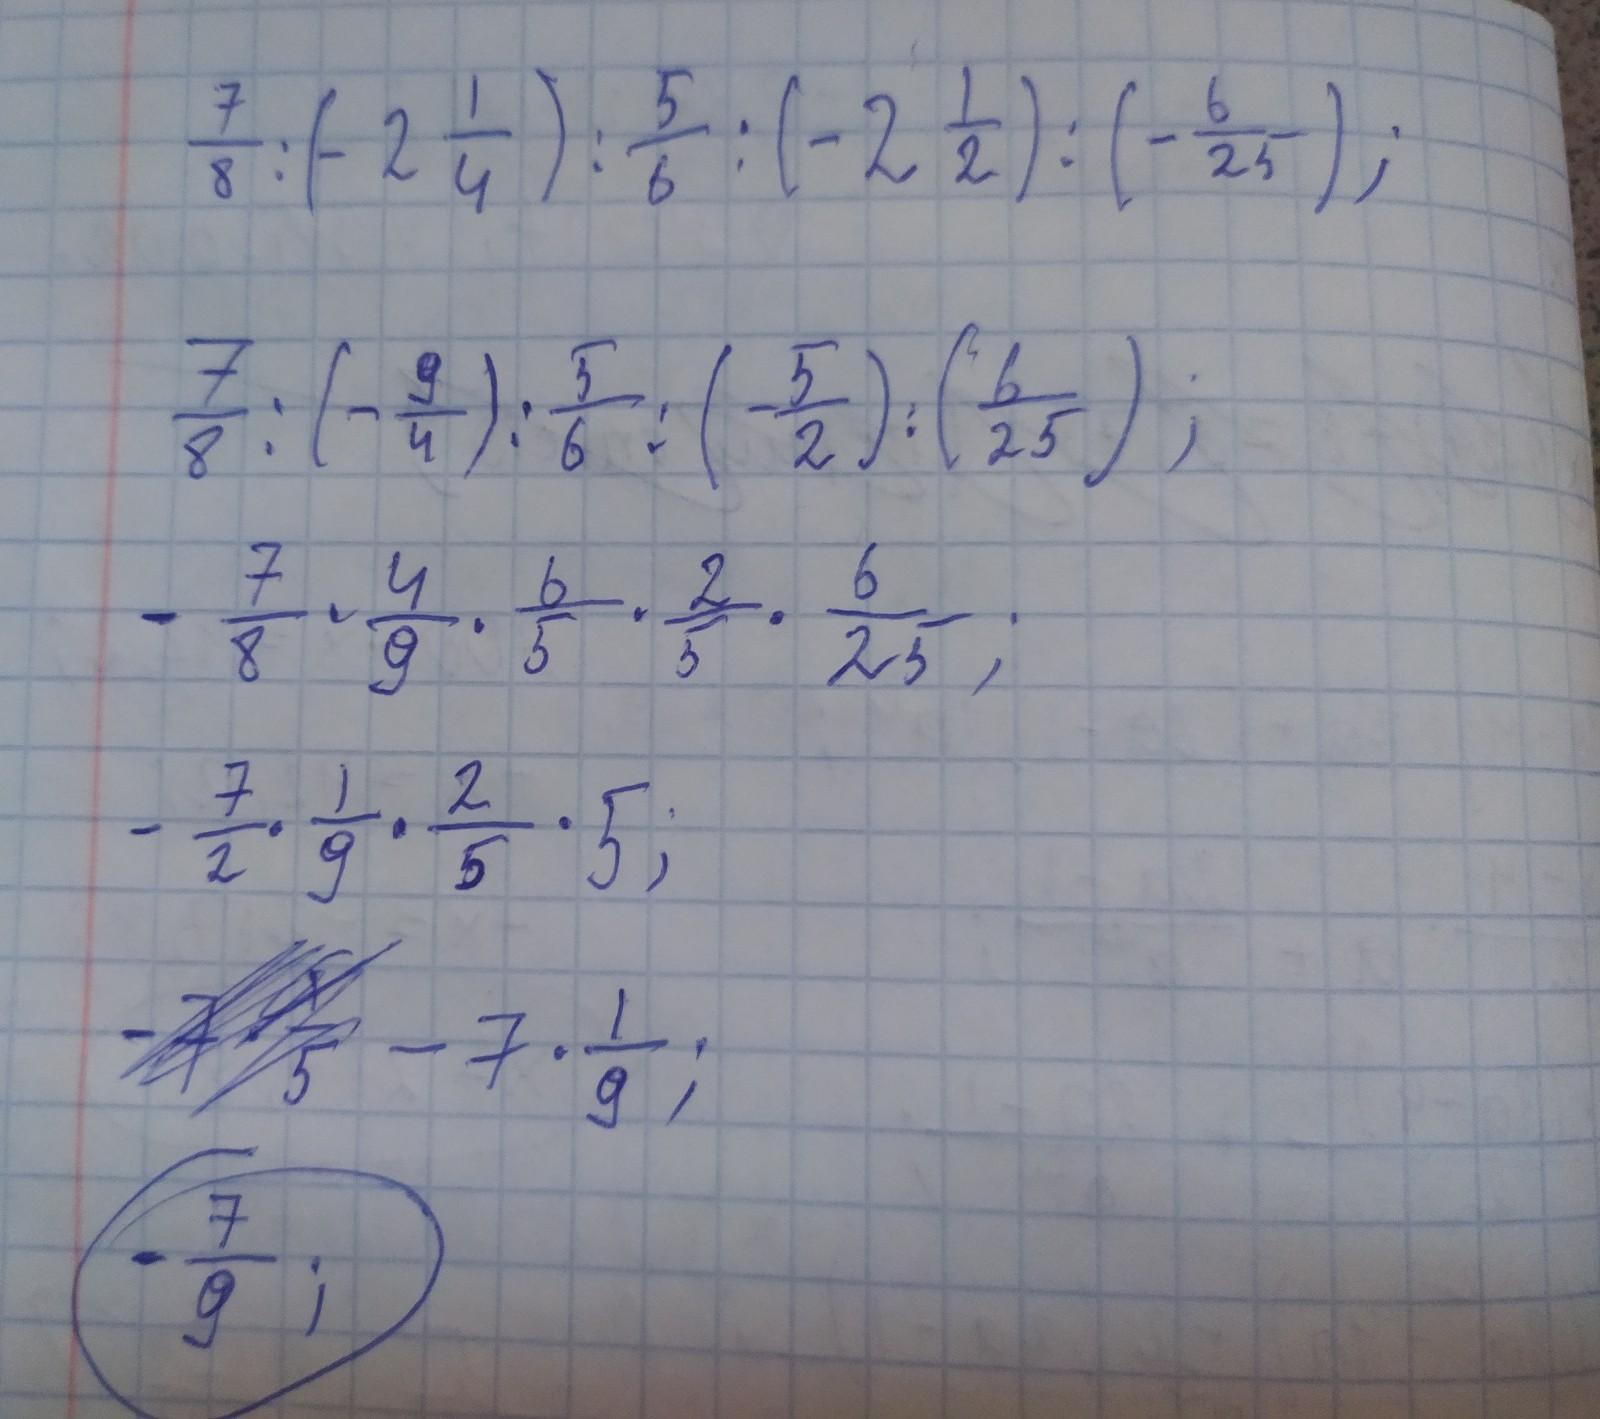 7/8 : (- 2 1/4) : 5/6 : (- 2 1/2) : (- 6/25);
7/8 : (- 9/4) : 5/6 : (- 5/2) : (6/25);
- 7/8 · 4/9 · 6/5 · 2/5 · 6/25;
- 7/2 · 1/9 · 2/5 · 5;
- 7 · 1/9;
- 7/9;